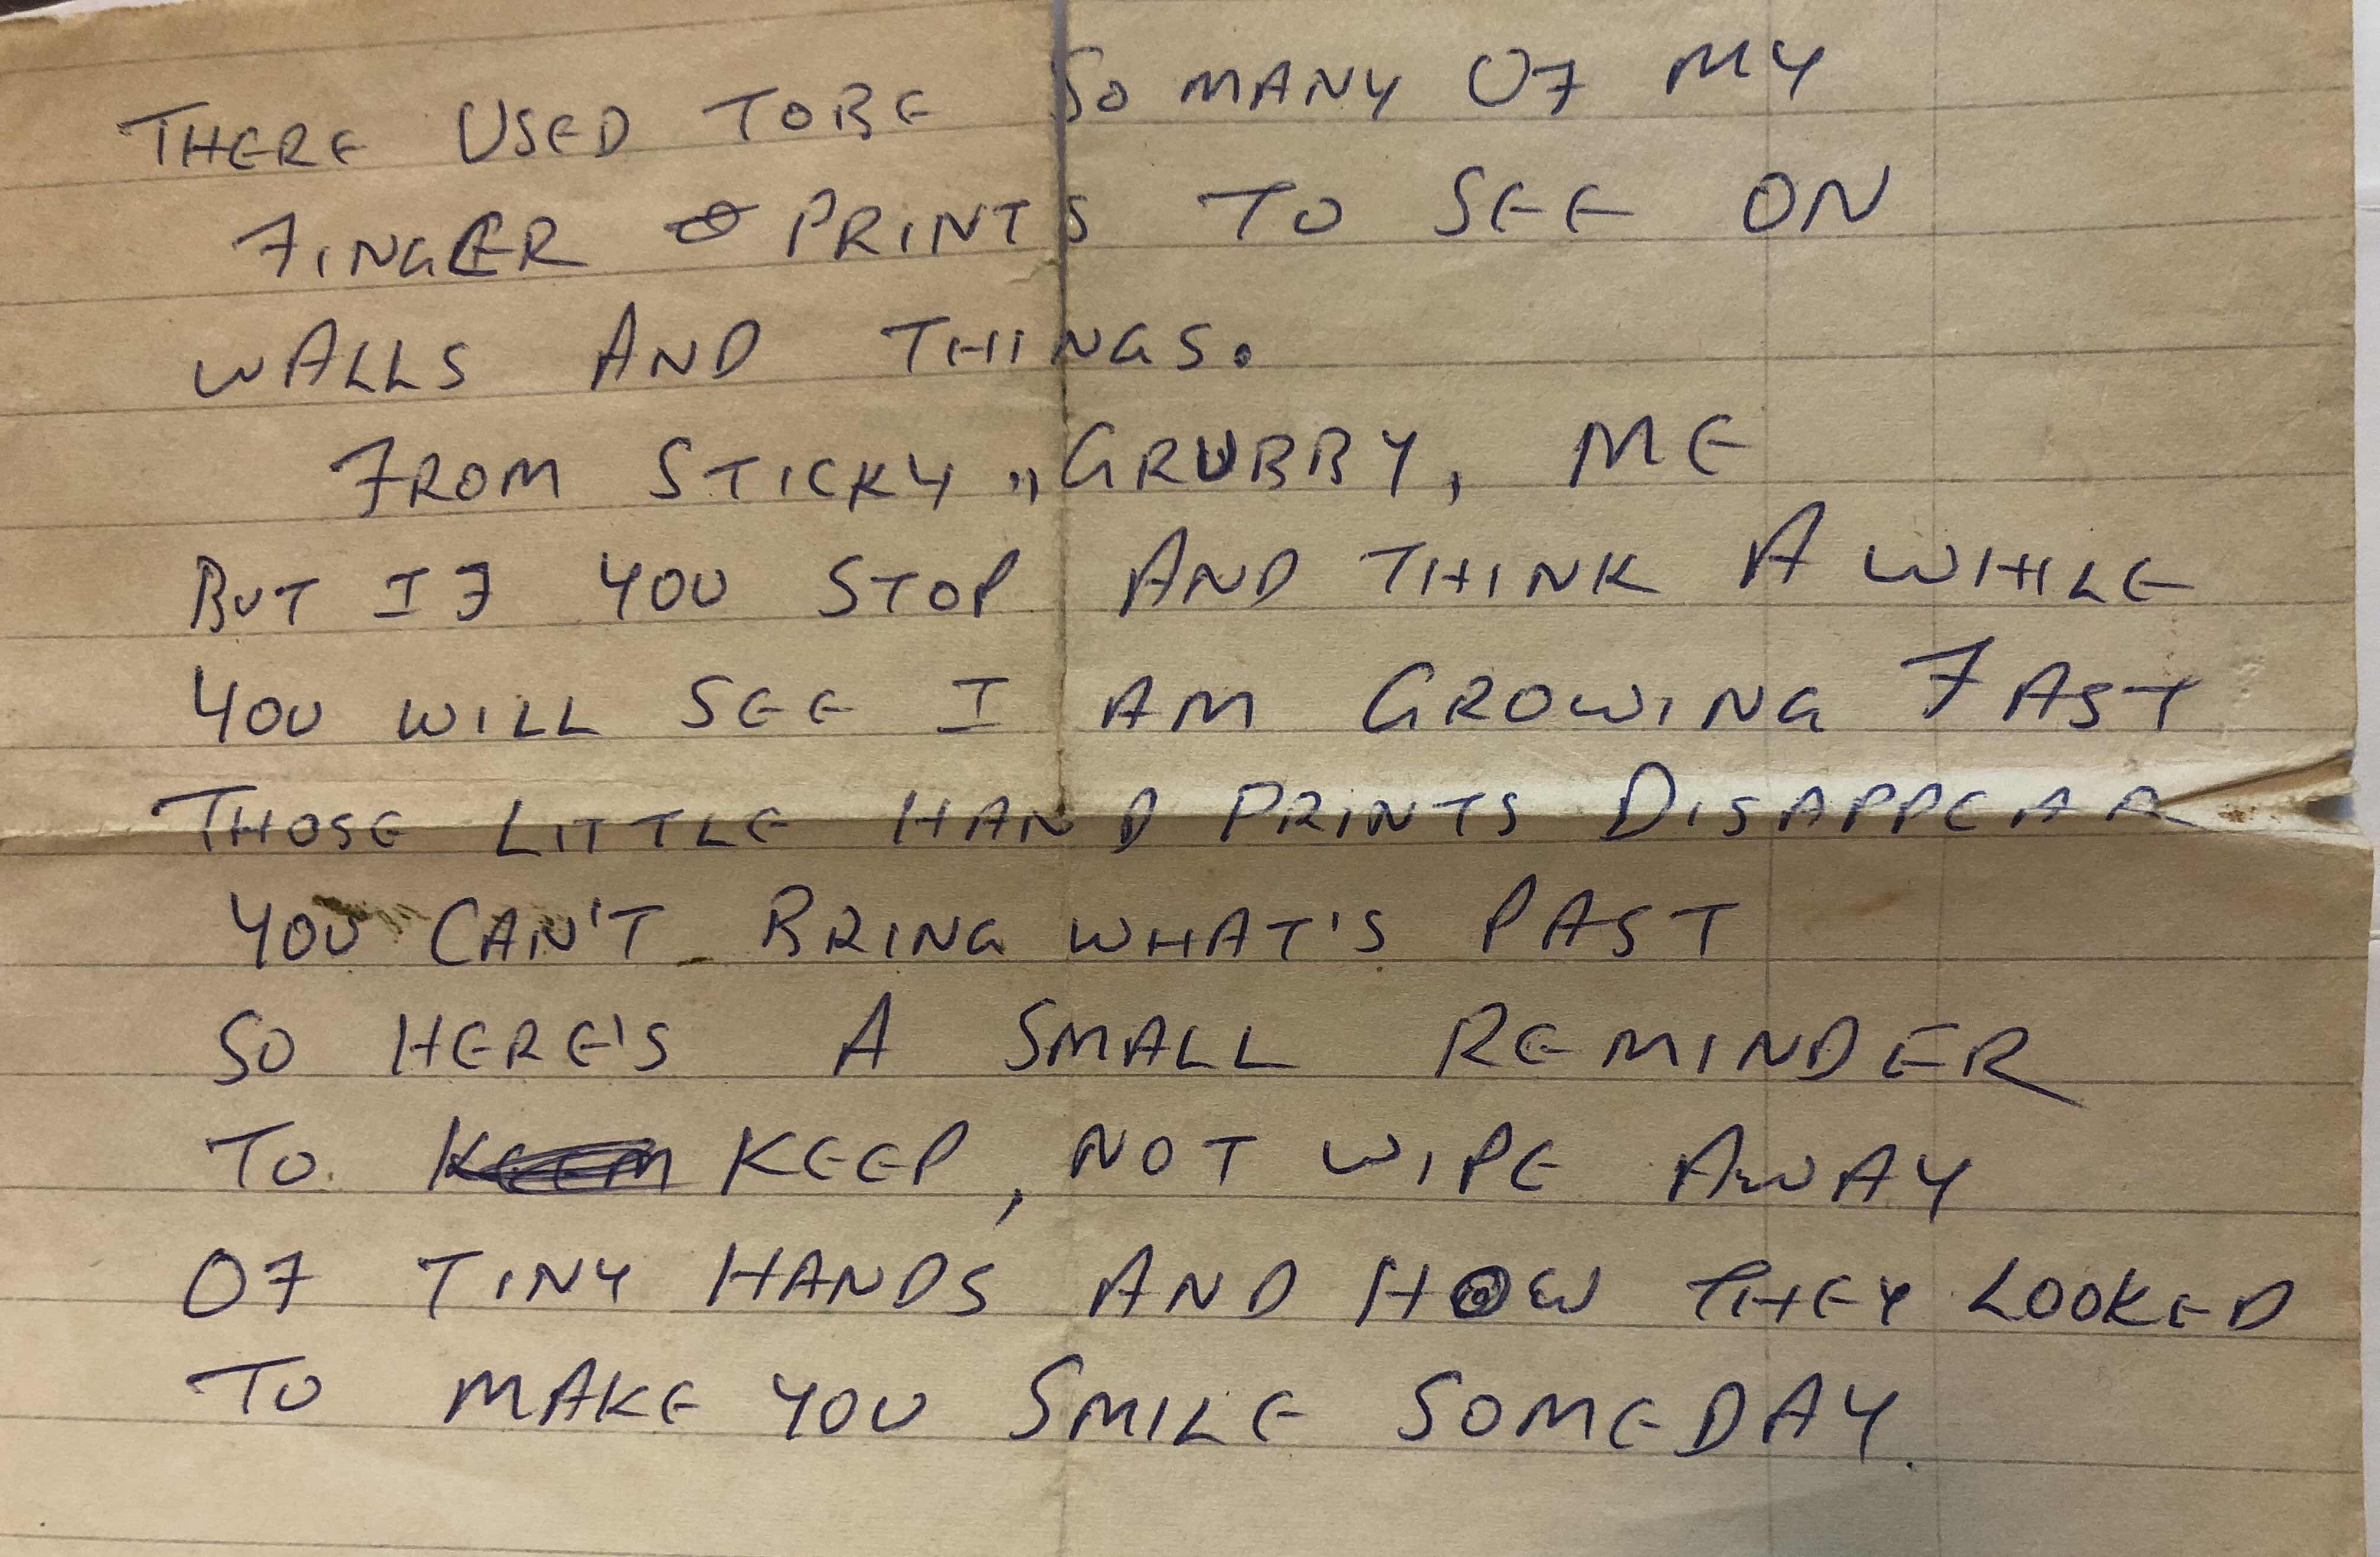 THERE USED TOBE SO MANY OF MY
FINGER PRINTS TO SEE ON
WALLS AND THINGS.
FROM STICKY ,, GRUBBY, ME
BUT IF YOU STOP AND THINK A WHILE
YOU WILL SEE I AM GROWING FAST
THOSE LITTLE HAND PRINTS DISAPPEAR
YOU CAN'T BRING WHAT'S PAST
SO HERE'S A SMALL REMINDER
TO KEEP, NOT WIPE AWAY
OF TINY HANDS AND HOW THEY LOOKED
TO MAKE YOU SMILE SOMEDAY.